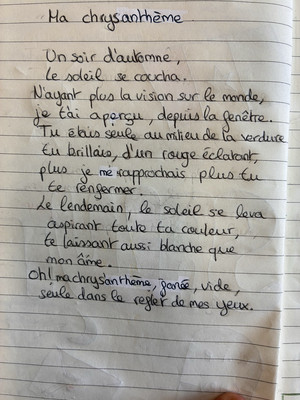 Ma chrysanthème
Un soir d'automne,
le soleil se coucha.
N'ayant plus la vision sur le monde,
je t'ai aperçu, depuis la fenêtre.
Tu étais seule au milieu de la verdure
tu brillais, d'un rouge éclatant,
plus je me rapprochais plus tu
te renfermer.
Le lendemain, le soleil se leva
aspirant toute ta couleur,
te laissant aussi blanche que
mon âme.
Oh! ma chrysanthème, fanée, vide,
seule dans le reglet de mes yeux.